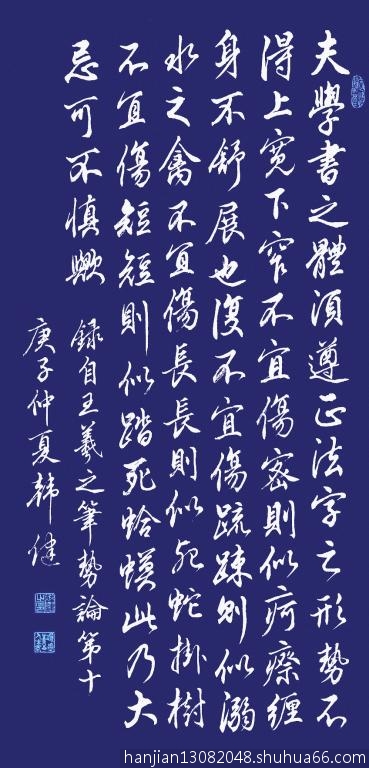 夫學書之體須遵正法字之形勢不
得上寬下窄不宜傷密則似疴瘵纏
身不舒展也復不宜傷疏疎則似溺
水之禽不宜傷長長則似死蛇掛樹
不宜傷短短則似踏死蛤蟆此乃大
忌可不慎歟
録自王羲之筆勢論第十
庚子仲夏韓健
hanjian13082048.shuhua66.com